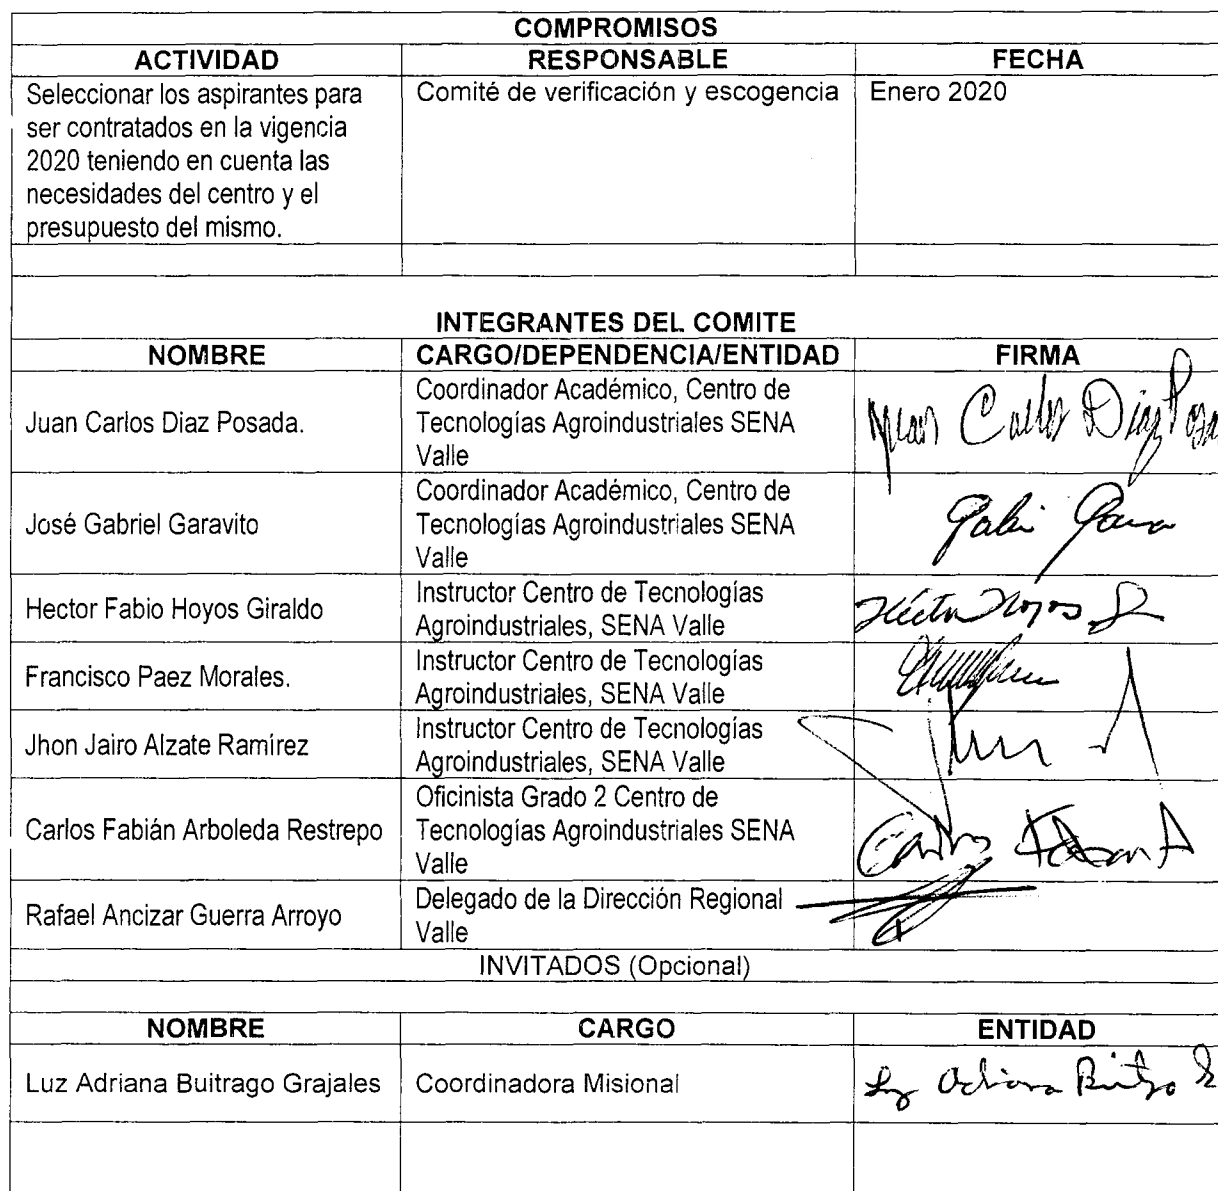 COMPROMISOS
ACTIVIDAD RESPONSABLE FECHA
Seleccionar los aspirantes para
ser contratados en la vigencia
2020 teniendo en cuenta las
necesidades del centro y el
presupuesto del mismo.
Comité de verificación y escogencia
Enero 2020
INTEGRANTES DEL COMITE
NOMBRE CARGO/DEPENDENCIA/ENTIDAD FIRMA
Juan Carlos Diaz Posada.
Coordinador Académico, Centro de
Tecnologías Agroindustriales SENA
Valle
Juan Carlos Díaz Posa
José Gabriel Garavito
Coordinador Académico, Centro de
Tecnologías Agroindustriales SENA
Valle
Hector Fabio Hoyos Giraldo
Instructor Centro de Tecnologías
Agroindustriales, SENA Valle
Héctor Hoyos G
Francisco Paez Morales.
Instructor Centro de Tecnologías
Agroindustriales, SENA Valle
Jhon Jairo Alzate Ramírez
Instructor Centro de Tecnologías
Agroindustriales, SENA Valle
Carlos Fabián Arboleda Restrepo
Oficinista Grado 2 Centro de
Tecnologías Agroindustriales SENA
Valle
Carlos Fabian A
Rafael Ancizar Guerra Arroyo
Delegado de la Dirección Regional
Valle
INVITADOS (Opcional)
NOMBRE CARGO ENTIDAD
Luz Adriana Buitrago Grajales
Coordinadora Misional
Luz Adriana Buitrago G